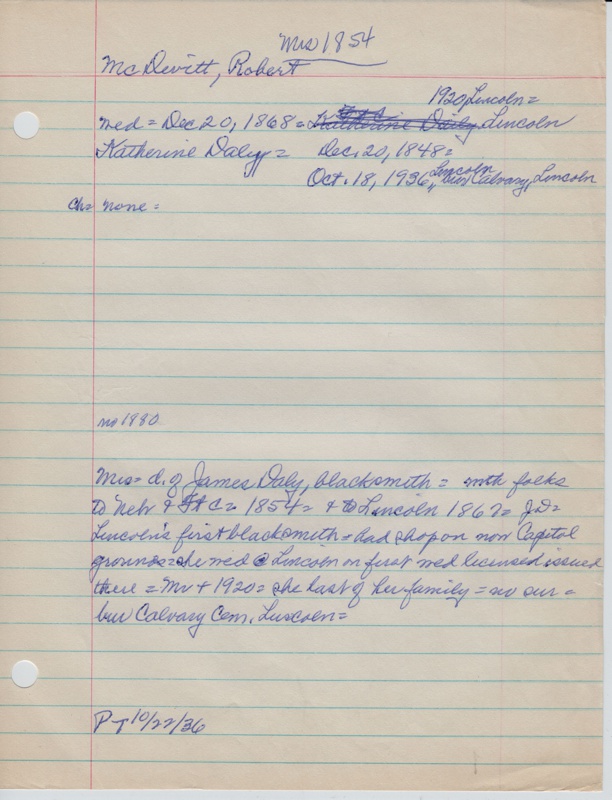 Mrs 1854
McDevitt, Robert
1920, Lincoln =
wed = Dec 20, 1868 = Katherine Daily Lincoln
Katherine Daly = Dec. 20, 1848 =
Oct. 18, 1936, Lincoln, bur Calvary, Lincoln
Ch = none =
no 1880
Mrs = d. of James Daly, blacksmith = with folks
to Nebr & = 1854 = & to Lincoln 1867 = J.D =
Lincoln's first blacksmith + had shop on now Capitol
grounds = she wed @ Lincoln on first wed license issued
there = Mr + 1920 = she last of her family = no sur =
bur Calvary Cem, Lincoln =
P-T 10/22/36